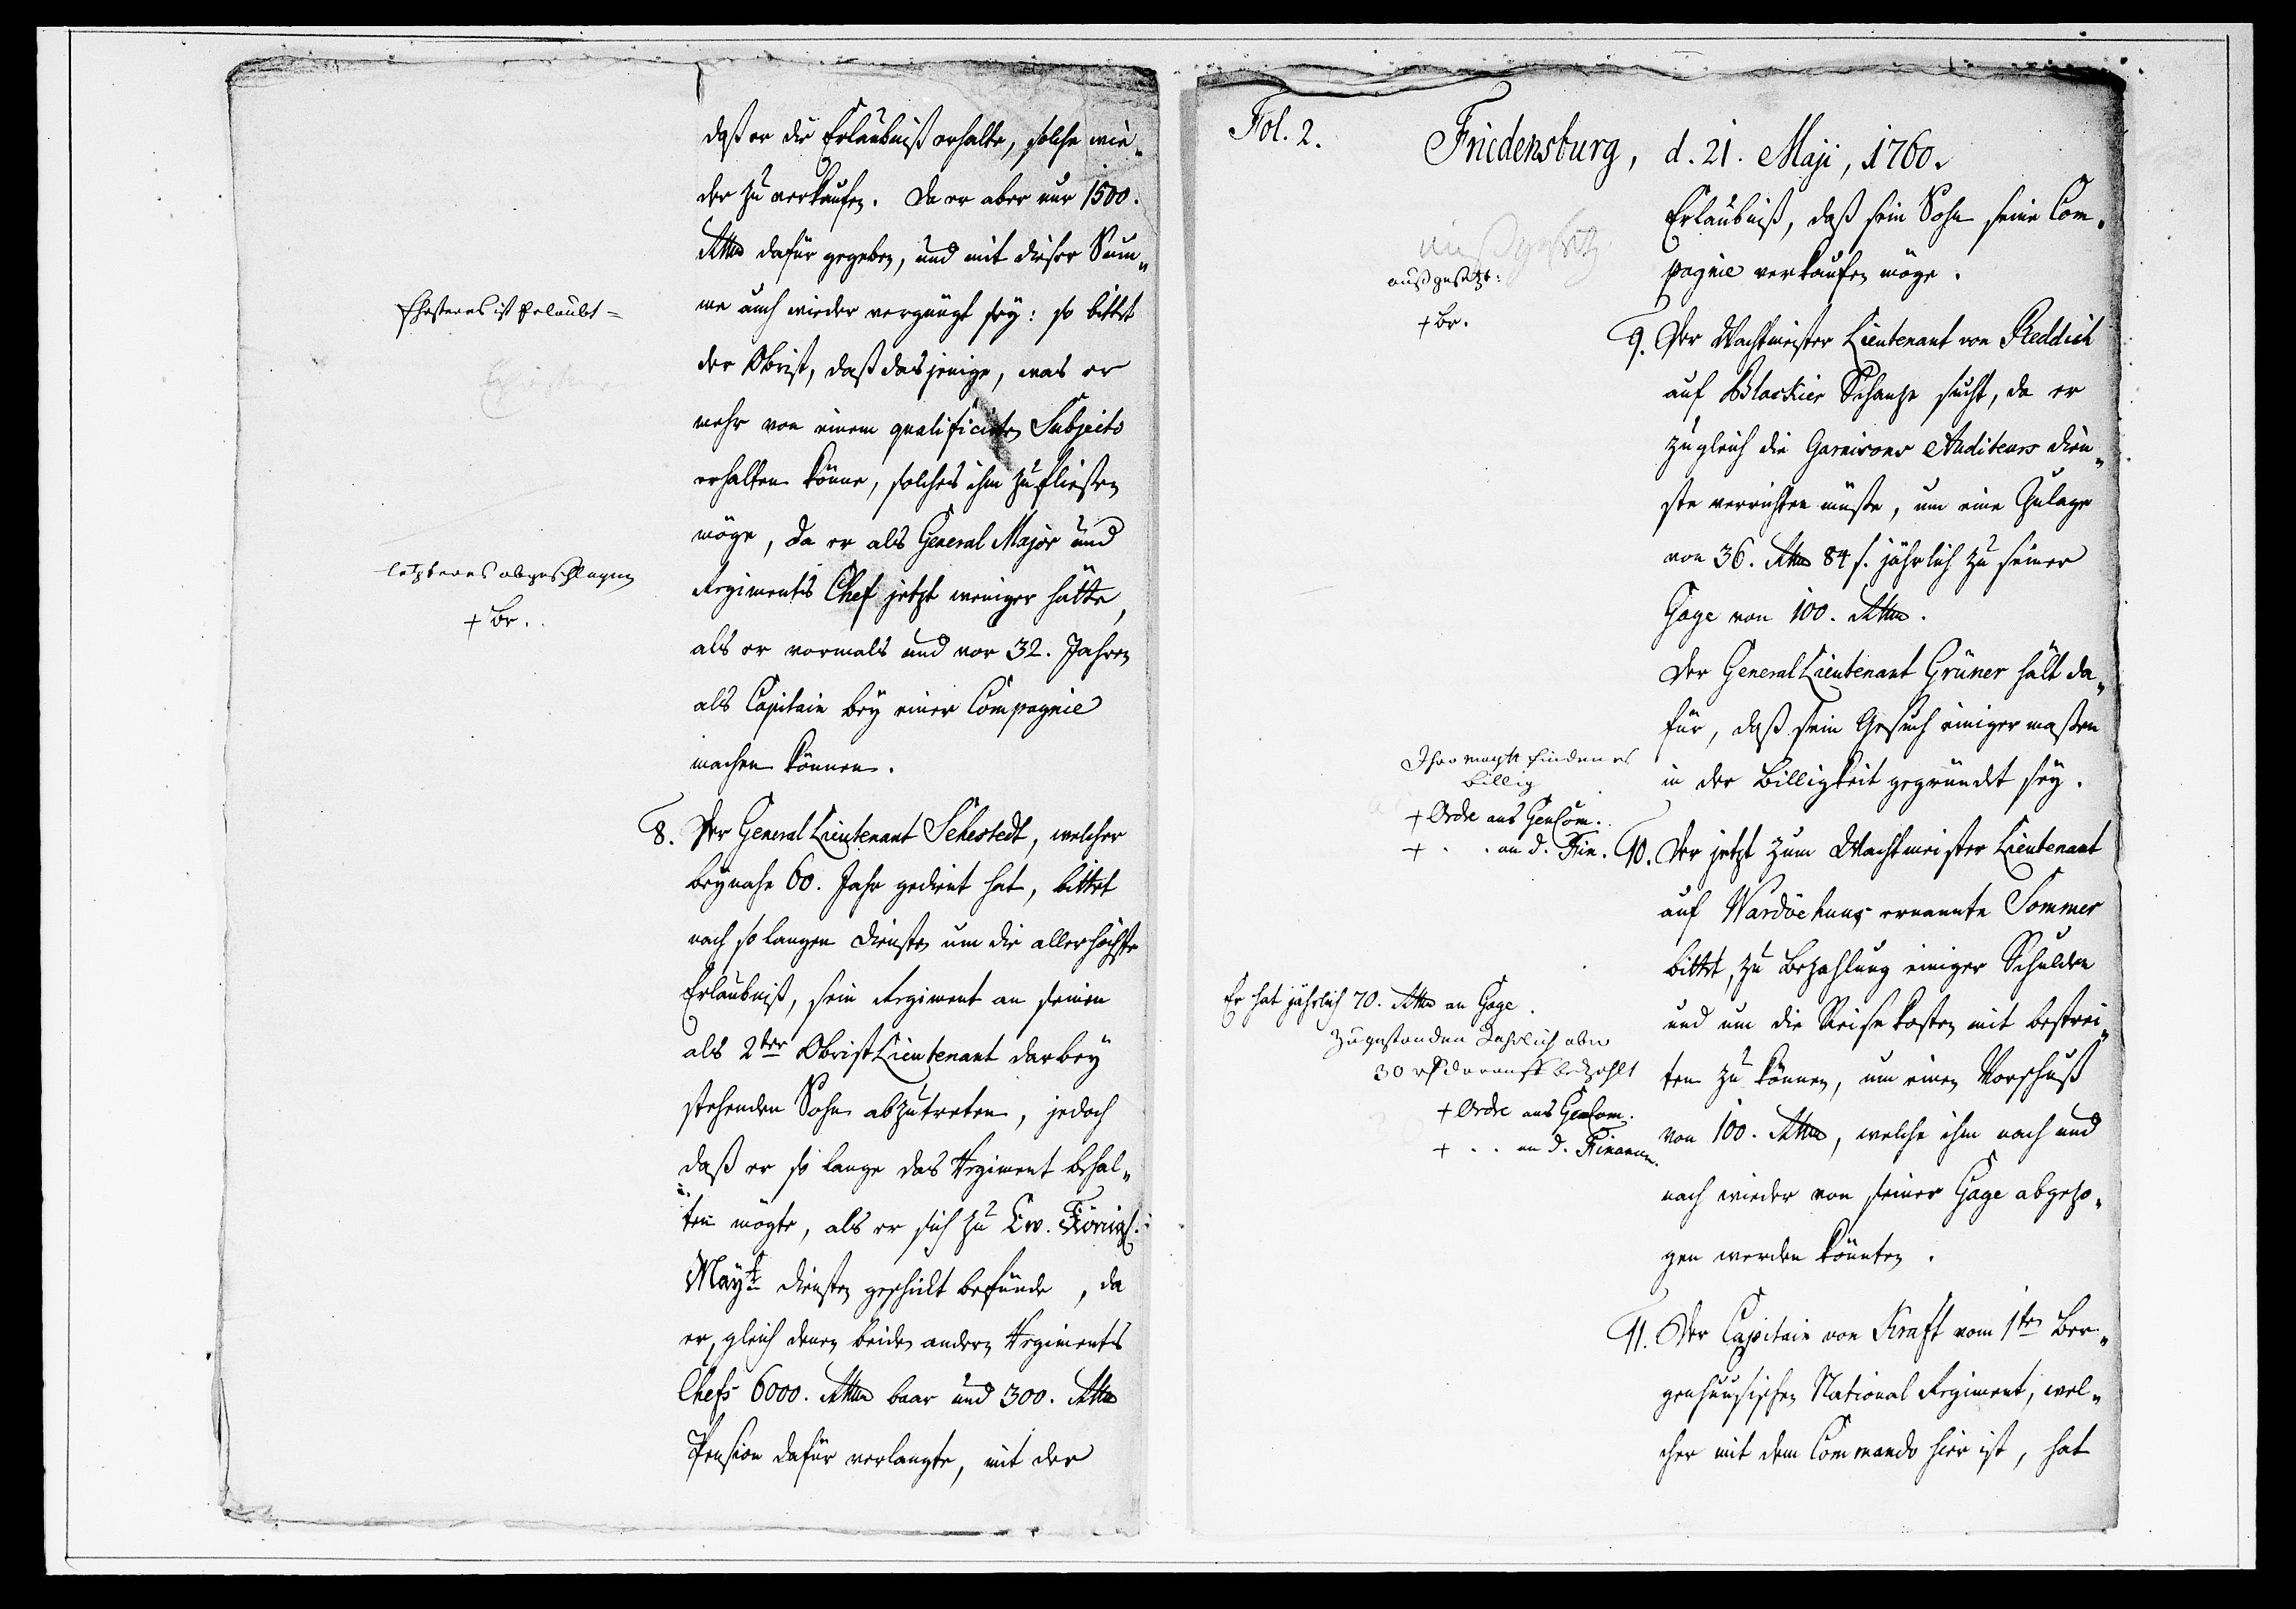 daß er die Erlaubniß erhalte, solche wie„
der zu verkaufen. Da er aber nur 1500.
Rthlr dafür gegeben, und mit dieser Sum„
me auch wieder vergnügt sey: so bittet
der Obrist, daß dasjenige, was er
mehr von einem qualificirten Subjecto
erhalten könne, solches ihm zufließen
möge, da er als General Major und
Regiments Chef jetzt weniger hätte,
als er vormals und vor 32. Jahren
als Capitain bey einer Compagnie
machen können.
Ersteres ist Erlaubt =
letzteres abgeschlagen
+ Br.
8. Der General Lieutenant Sehestedt, welcher
beynahe 60. Jahr gedient hat, bittet
nach so langen Diensten um die allerhöchste
Erlaubniß, sein Regiment an seinen
als 2ter Obrist Lieutenant darbey
stehenden Sohn abzutreten, jedoch
daß er so lange das Regiment behal„
ten mögte, als er sich zu Ew. Königl.
Mayt. Diensten geschickt befünde, da
er, gleich denen beiden andern Regiments
Chefs 6000. Rthlr baar und 300. Rthlr
Pension dafür verlangte, mit der
Fol. 2.
Friedensburg, d. 21. Maji, 1760.
Erlaubniß, daß sein Sohn seine Com„
pagnie verkaufen möge.
außgesetzt:
+ Br.
9. Der Wachtmeister Lieutenant von Reddich
auf Blackier Schanze sucht, da er
zugleich die Garnisons Auditeurs Dien„
ste verrichten müßte, um eine Zulage
von 36. Rthlr 84 s. jährlich zu seiner
Gage von 100. Rthlr.
Der General Lieutenant Grüner hält da„
für, daß sein Gesuch einigermaßen
in der Billigkeit gegründet sey.
Ihro Maytt finden es
billig
+ Ordre ans GenCom.
+ . . an d. Fin.
10. Der jetzt zum Wachtmeister Lieutenant
auf Wardöehuus ernannte Sommer
bittet, zu Bezahlung einiger Schulden
und um die Reisekosten mit bestrei„
ten zu können, um einen Vorschuß
von 100. Rthlr, welche ihm nach und
nach wieder von seiner Gage abgezo„
gen werden könnten.
Er hat jährlich 70. Rthlr an Gage.
Zugestanden Jahrlich aber
30 rh darauf bezahlt
+ Ordre ans GenCom.
+ . . an d. Finanz.
11. Der Capitain von Kraft vom 1ten Ber„
genhuusischen National Regiment, wel„
cher mit dem Commando hier ist, hat